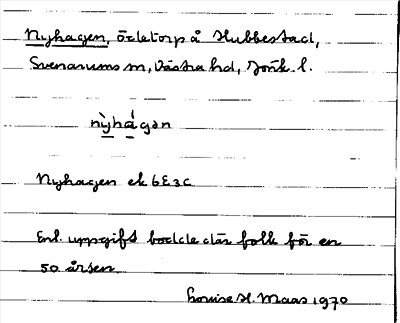 Nyhagen, ödetorp å Hubbestad,
Svenarums sn, Västra hd, Jönk. l.
nỳhágən
Nyhagen ek 6E3c
Enl. uppgift bodde där folk för en
50 år sen
Louise H. Maas 1970